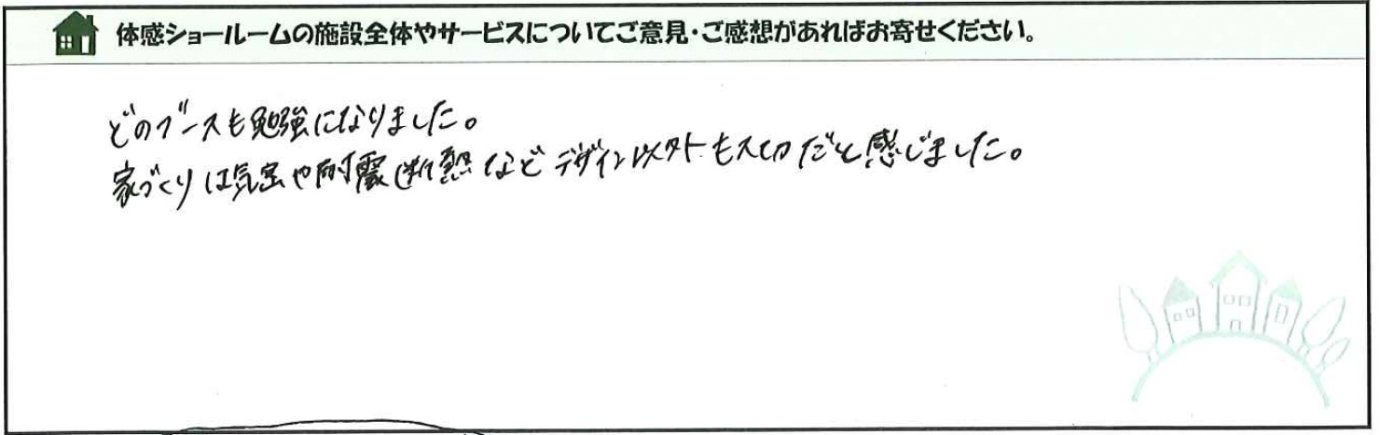 体感ショールームの施設全体やサービスについてご意見・ご感想があればお寄せください。
どのブースも勉強になりました。
家づくりは気密や耐震断熱などデザイン以外も大切だと感じました。